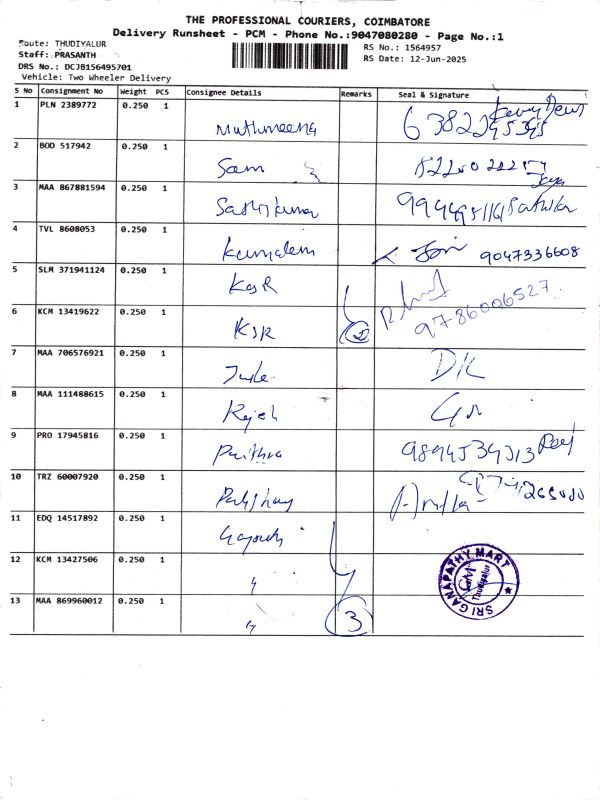 THE PROFESSIONAL COURIERS, COIMBATORE
Delivery Runsheet - PCM - Phone No.:9047080280 - Page No.:1
Route: THUDIYALUR
Staff: PRASANTH
DRS No.: DCJB156495701
Vehicle: Two Wheeler Delivery
RS No.: 1564957
RS Date: 12-Jun-2025
S No Consignment No Weight PCS Consignee Details Remarks Seal & Signature
1 PLN 2389772 0.250 1 Muthumeena
2 BOD 517942 0.250 1 Sam
3 MAA 867881594 0.250 1 Sathikumar
4 TVL 8608053 0.250 1 9047336608
5 SLM 371941124 0.250 1 KGR
6 KCM 13419622 0.250 1 KJR 2 9786006527
7 MAA 706576921 0.250 1
8 MAA 111488615 0.250 1 Rajesh
9 PRO 17945816 0.250 1 Pavithra 9894534313
10 TRZ 60007920 0.250 1
11 EDQ 14517892 0.250 1 Gayathri
12 KCM 13427506 0.250 1 "
13 MAA 869960012 0.250 1 " 3
SRI GANAPATHY MART
GM
Thudiyalur